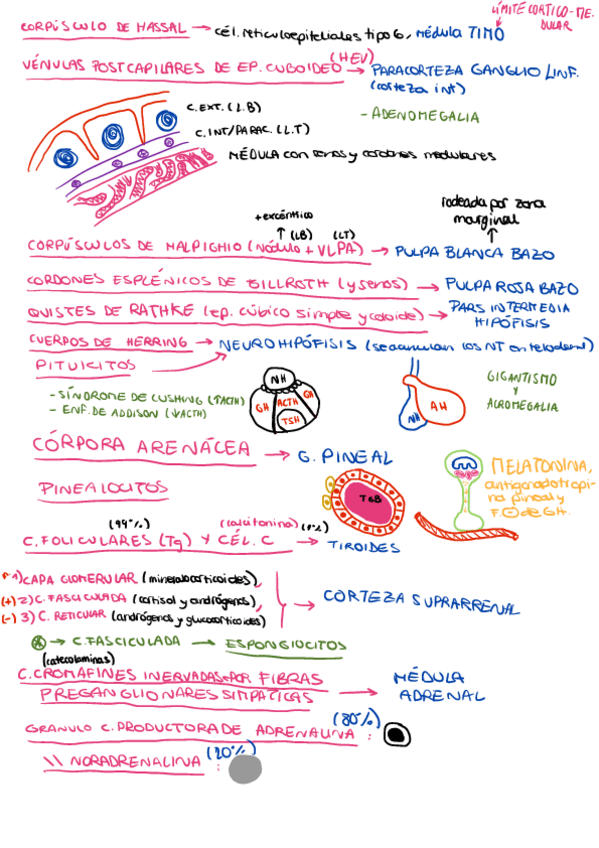 LÍMITE CORTICO-ME-
DULAR
CORPÚSCULO DE HASSAL → cél. reticuloepiteliales tipo 6, médula TIMO
VÉNULAS POSTCAPILARES DE EP. CUBOIDEO (HEV) → PARACORTEZA GANGLIO LINF.
(corteza int)
- ADENOMEGALIA
C. EXT. (L.B)
C. INT/PARAC. (L.T)
MÉDULA con senos y cordones medulares
rodeada por zona
marginal
+ excéntrico
↑ (LB) (LT)
CORPÚSCULOS DE MALPIGHIO (nódulo + VLPA) → PULPA BLANCA BAZO
CORDONES ESPLÉNICOS DE BILLROTH (y senos) → PULPA ROJA BAZO
QUISTES DE RATHKE (ep. cúbico simple y coloide) → PARS INTERMEDIA
HIPÓFISIS
CUERPOS DE HERRING → NEUROHIPÓFISIS (se acumulan los NT en telodend)
PITUICITOS
- SÍNDROME DE CUSHING (↑ACTH)
- ENF. DE ADDISON (↓ACTH)
NH
GH ACTH GH
TSH
NH AH
GIGANTISMO
Y
ACROMEGALIA
CÓRPORA ARENÁCEA → G. PINEAL
PINEALOCITOS
TGB
MELATONINA,
antigonadotropi-
na pineal y
F. ⊖ de GH.
(99%) (calcitonina) (1%)
C. FOLICULARES (Tg) Y CÉL. C → TIROIDES
1) CAPA GLOMERULAR (mineralocorticoides),
(+) 2) C. FASCICULADA (cortisol y andrógenos),
(-) 3) C. RETICULAR (andrógenos y glucocorticoides)
→ CORTEZA SUPRARRENAL
→ C. FASCICULADA → ESPONGIOCITOS
(catecolaminas)
C. CROMAFINES INERVADAS POR FIBRAS
PREGANGLIONARES SIMPÁTICAS → MÉDULA
ADRENAL
GRÁNULO C. PRODUCTORA DE ADRENALINA (80%) :
\\ NORADRENALINA (20%) :